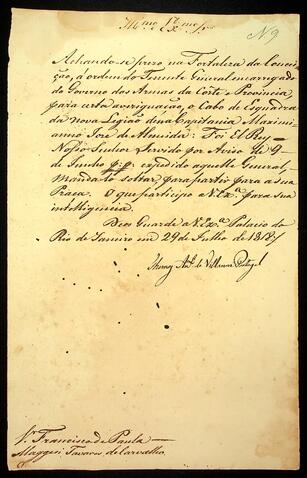 Illmo. e Exmo. Snr.
N 9
Achando-se prezo na Fortaleza da Concei-
ção, á ordem do Tenente General encarregado
do Governo das Armas da Corte e Provincia,
para certa averiguação, o Cabo de Esquadra
da Nova Legião dessa Capitania Maximi-
anno José de Almeida: Foi El Rey
Nosso Senhor Servido por Aviso de 9
de Junho p. p. expedido aquelle General,
Mandalo soltar, para partir para a sua
Praça. O que participo a V. Exa. para sua
intelligencia.
Deos Guarde a V. Exa. Palacio do
Rio de Janeiro em 29 de Julho de 1818
Thomaz Anto. de Villanova Portugal
Sr. Francisco de Paula
Maggesi Tavares de Carvalho.